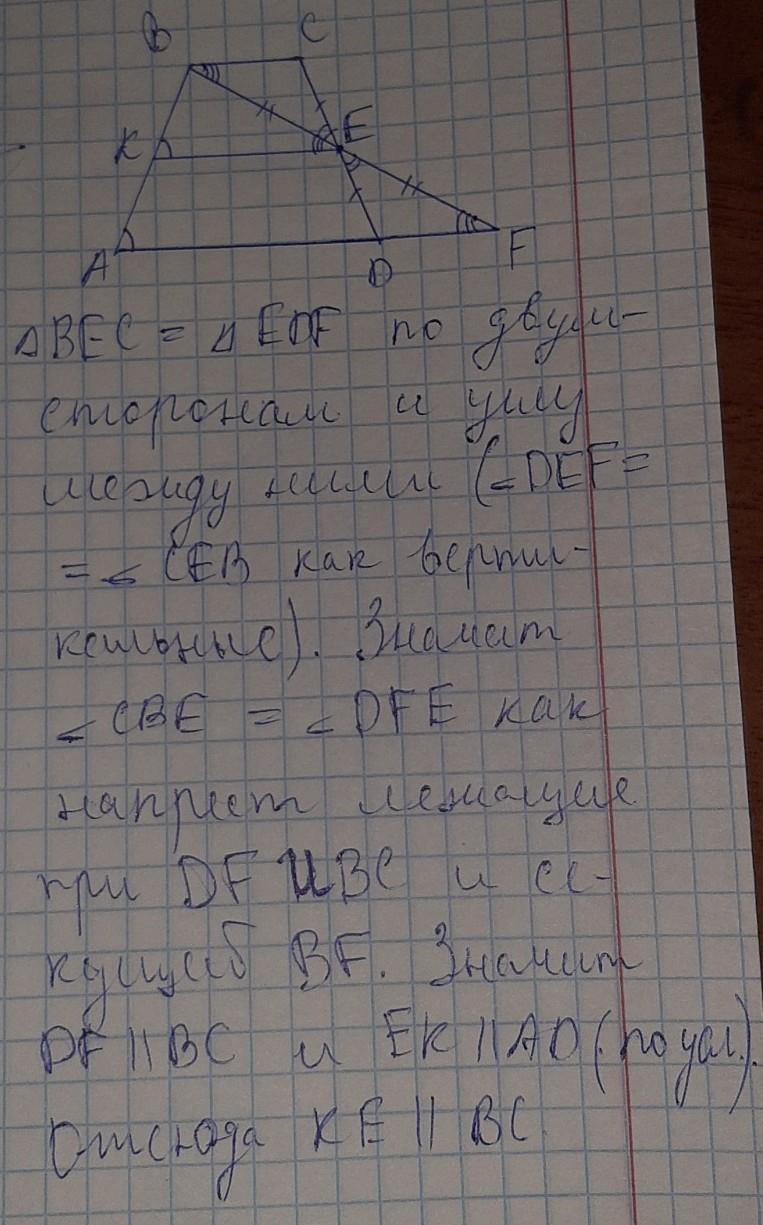 B C
K E
A D F
△BEC = △EDF по двум
сторонам и углу
между ними (∠DEF=
=∠CEB как верти-
кальные). Значит
∠CBE = ∠DFE как
накрест лежащие
при DF и BC и се-
кущей BF. Значит
DF || BC и EK || AD (по усл.).
Отсюда KE || BC